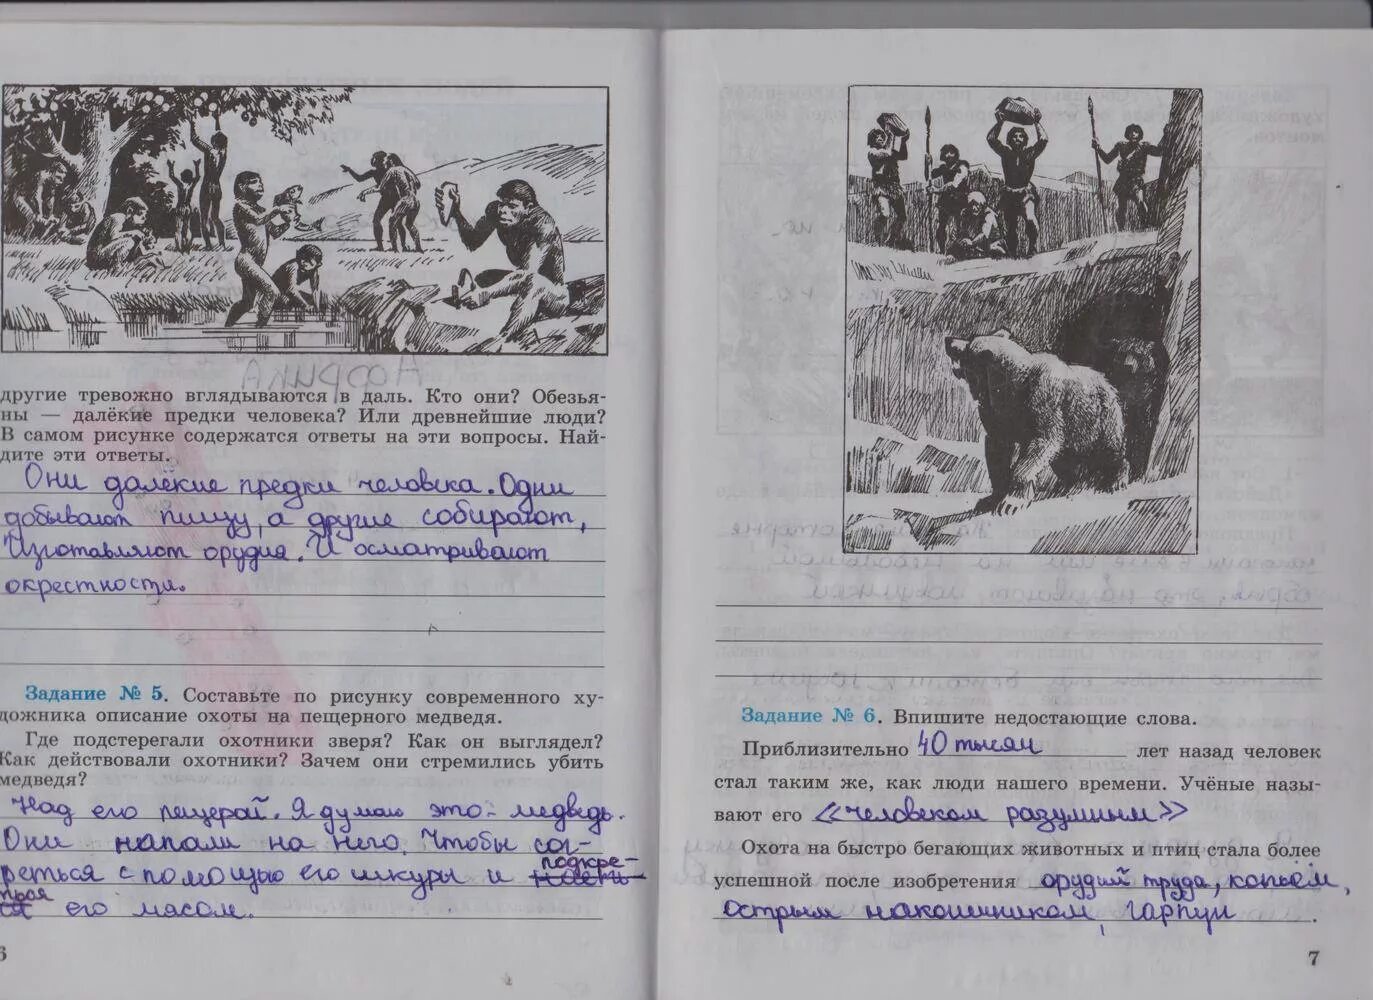 другие тревожно вглядываются в даль. Кто они? Обезья-
ны — далёкие предки человека? Или древнейшие люди?
В самом рисунке содержатся ответы на эти вопросы. Най-
дите эти ответы.
Они далёкие предки человека. Одни
добывают пищу, а другие собирают,
Изготавляют орудия. И осматривают
окрестности.
Задание № 5. Составьте по рисунку современного ху-
дожника описание охоты на пещерного медведя.
Где подстерегали охотники зверя? Как он выглядел?
Как действовали охотники? Зачем они стремились убить
медведя?
Над его пещерай. Я думаю это - медведь.
Они напали на него. Чтобы сог-
реться с помощью его шкуры и подкре-
пться его мясом.
6
Задание № 6. Впишите недостающие слова.
Приблизительно 40 тысяч лет назад человек
стал таким же, как люди нашего времени. Учёные назы-
вают его «человеком разумным»
Охота на быстро бегающих животных и птиц стала более
успешной после изобретения орудий труда, копьём,
острым наконшником, гарпун .
7
Африка